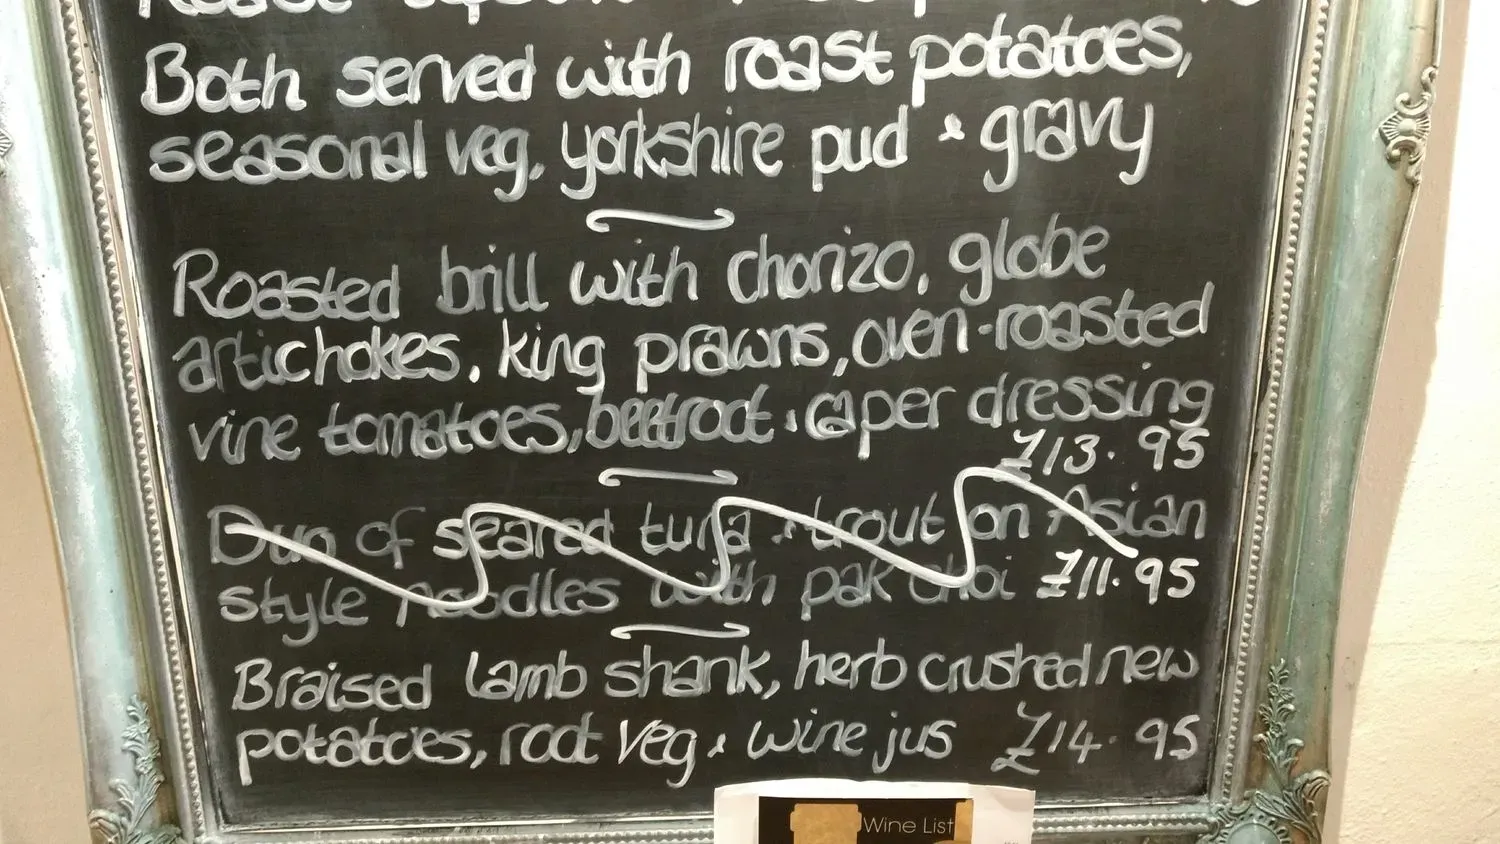 Roast
Both served with roast potatoes,
seasonal veg, yorkshire pud & gravy
Roasted brill with chorizo, globe
artichokes, king prawns, oven-roasted
vine tomatoes, beetroot & caper dressing
£13.95
Duo of seared tuna & trout on Asian
style noodles with pak choi £11.95
Braised lamb shank, herb crushed new
potatoes, root veg & wine jus £14.95
Wine List